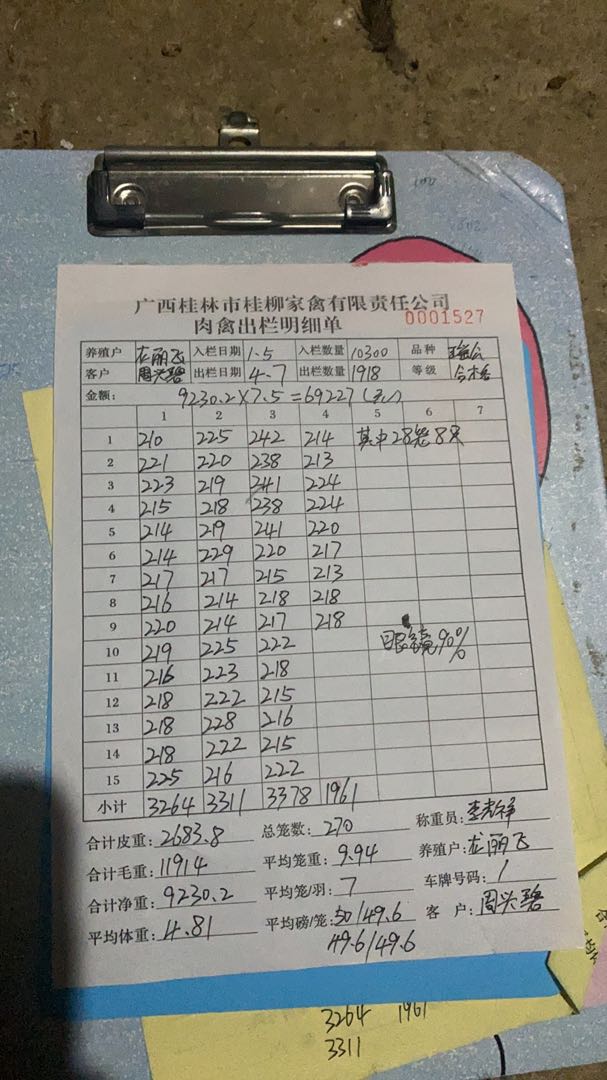 广西桂林市桂柳家禽有限责任公司
肉禽出栏明细单 0001527
养殖户 龙丽飞 入栏日期 1-5 入栏数量 10300 品种
客户 周兴碧 出栏日期 4-7 出栏数量 1918 等级 合格
金额: 9230.2×7.5=69227(元)
1 2 3 4 5 6 7
1 210 225 242 214 其中28笼8只
2 221 220 238 213
3 223 219 241 224
4 215 218 238 224
5 214 219 241 220
6 214 229 220 217
7 217 217 215 213
8 216 214 218 218
9 220 214 217 218
10 219 225 222 眼镜90%
11 216 223 218
12 218 222 215
13 218 228 216
14 218 222 215
15 225 216 222
小计 3264 3311 3378 1961
合计皮重: 2683.8 总笼数: 270 称重员:
合计毛重: 11914 平均笼重: 9.94 养殖户: 龙丽飞
合计净重: 9230.2 平均笼/羽: 7 车牌号码: /
平均体重: 4.81 平均磅/笼: 50/49.6 客 户: 周兴碧
49.6/49.6
3264 1961
3311